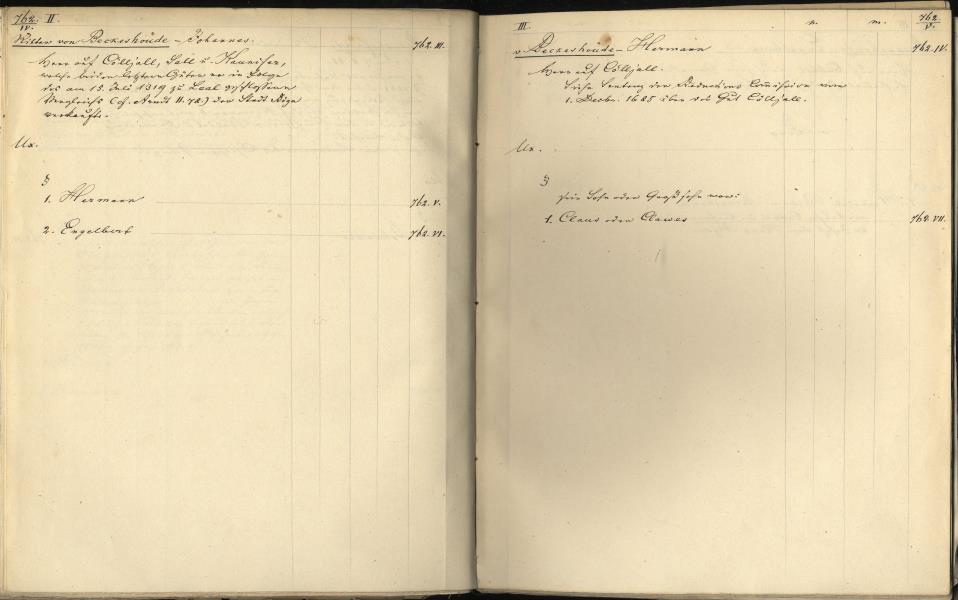 762. II.
IV.
Ritter von Beckeshoude - Johannes. 762. III.
Herr auf Cölljall, Sall u. Kaunifer,
welche beiden letztern Güter er in Folge
des am 15. Juli 1319 zu Leal geschlossenen
Vergleichs (cf. Arndt II. 72.) der Stadt Riga
verkaufte.
Ux.
3
1. Hermann 762. V.
2. Engelbert 762. VI.
III. n. m. 762.
V.
v. Beckeshoude - Hermann 762. IV.
Herr auf Cölljall.
Siehe Sentenz der Reductions Commission vom
1. Decbr. 1685 über das Gut Cölljall.
Ux.
3
Sein Sohn oder Großsohn war:
1. Claus oder Clawes 762. VII.